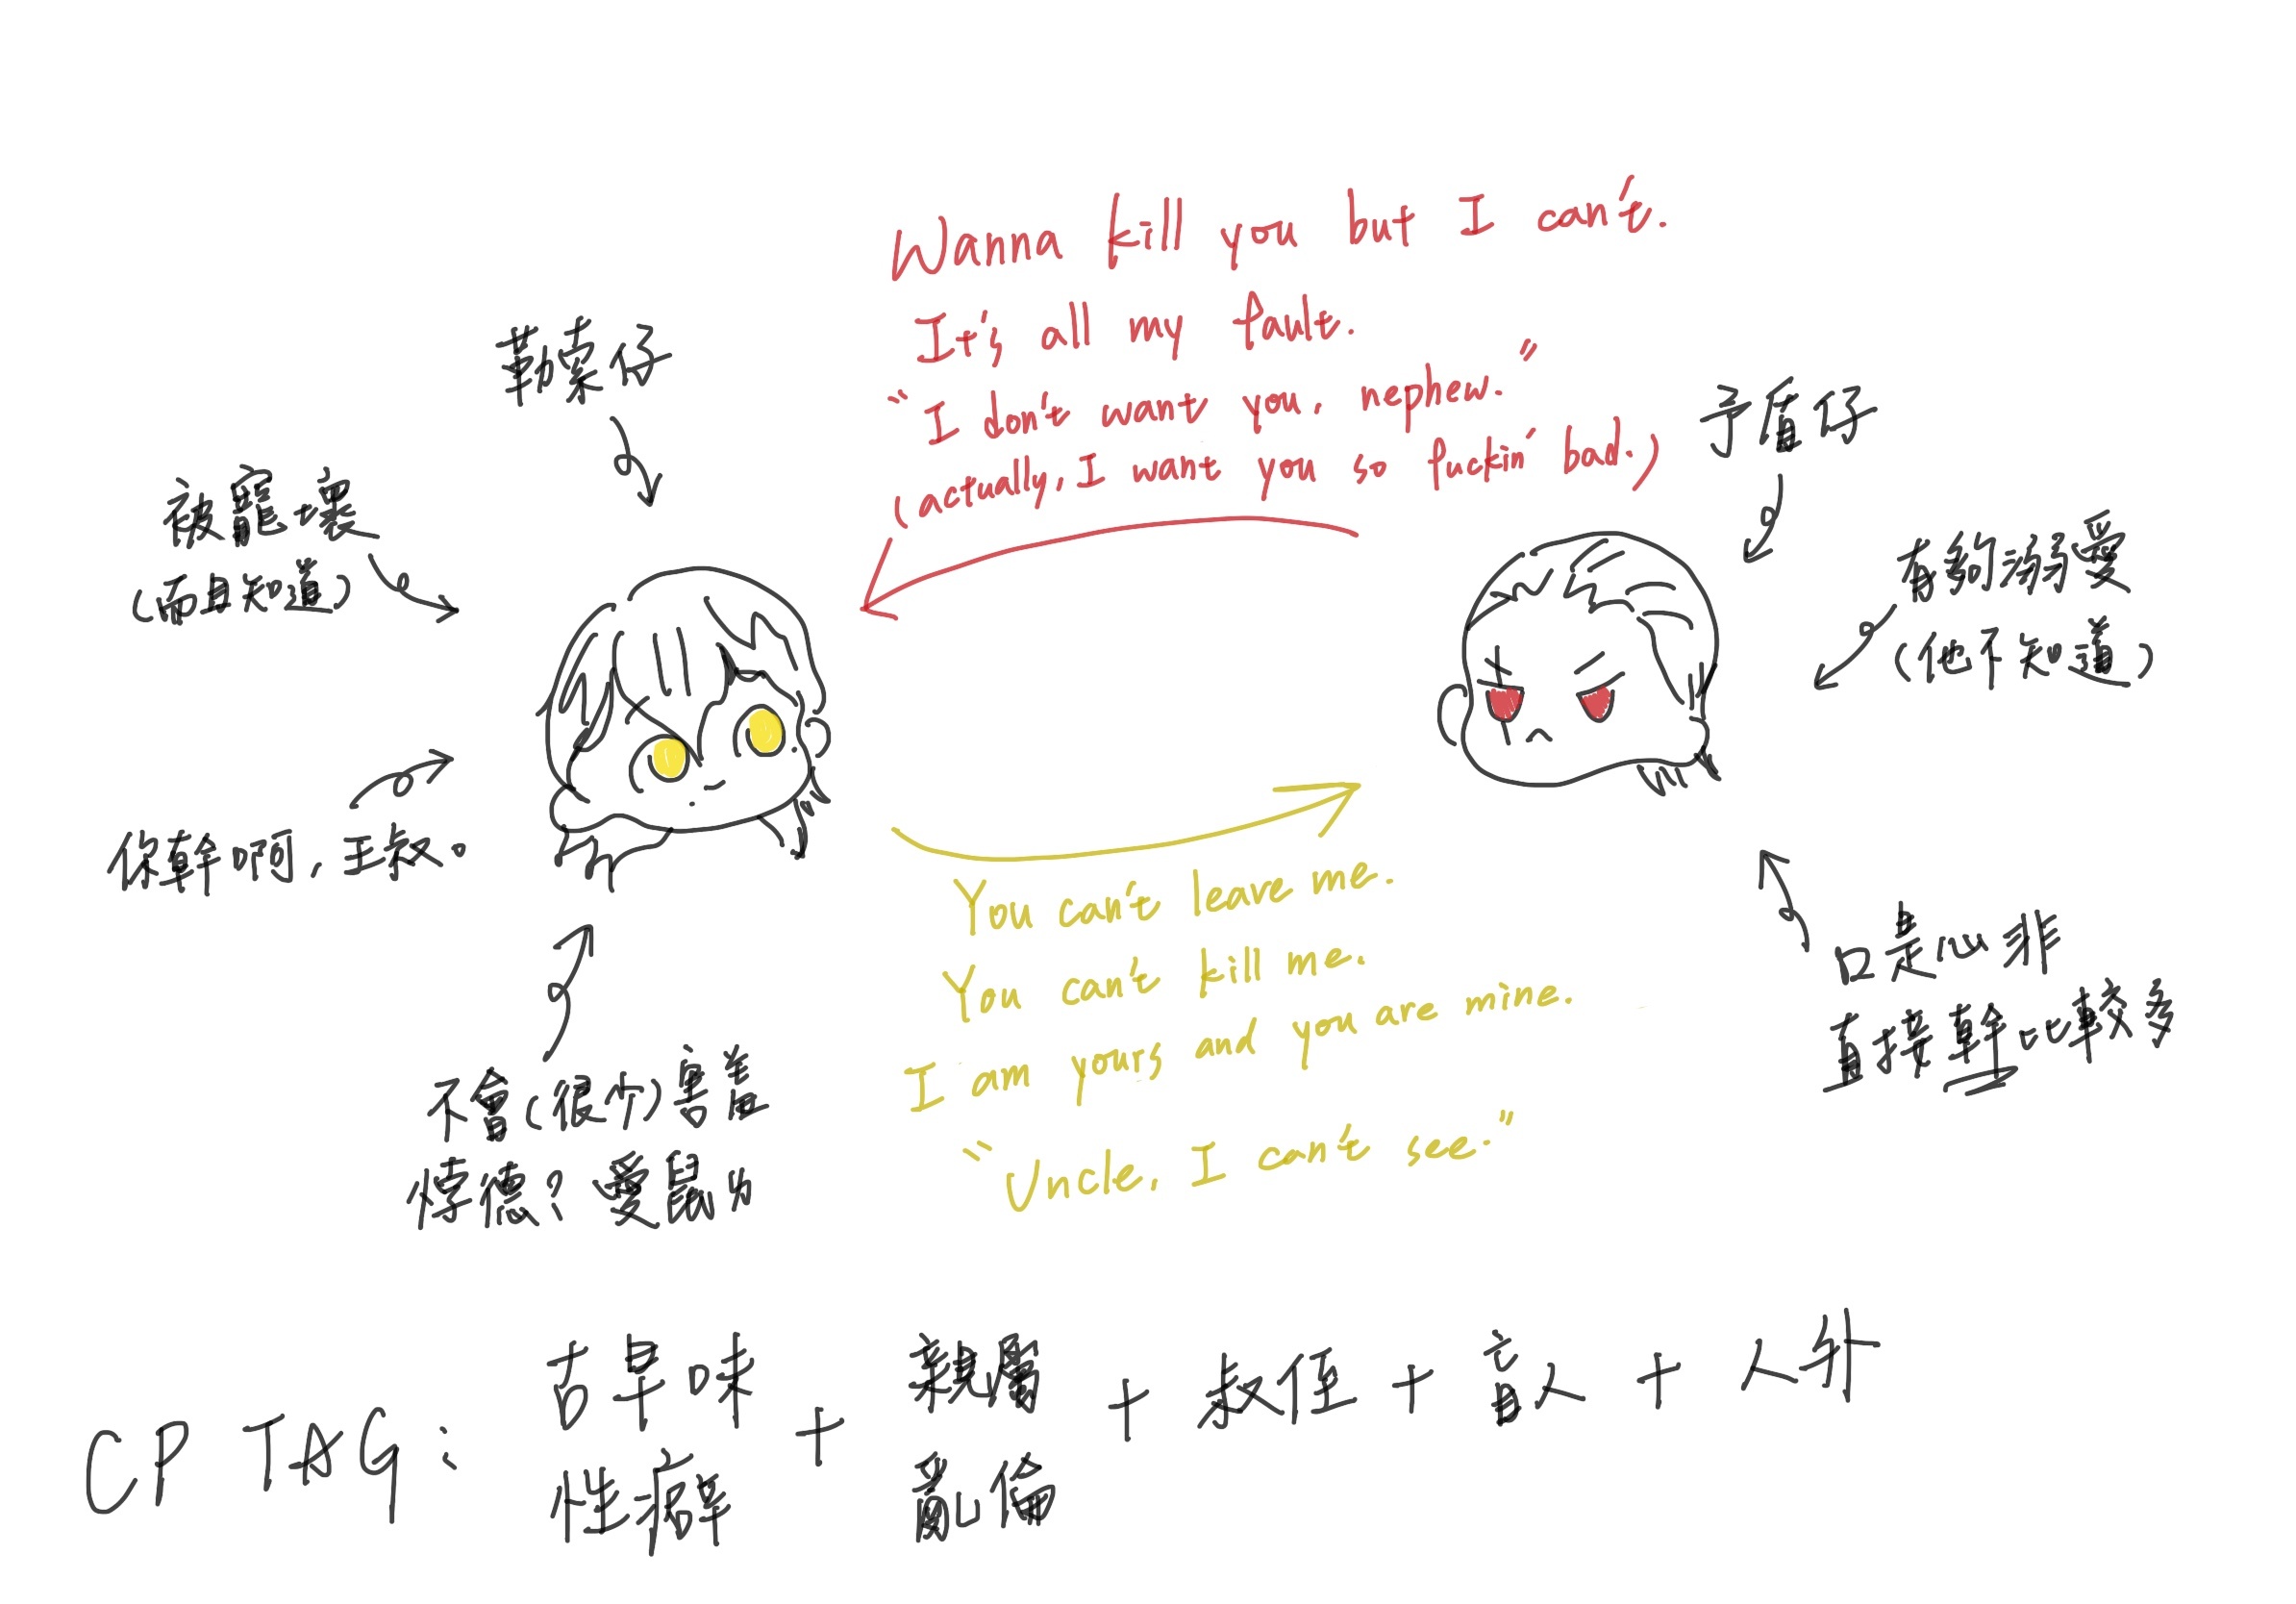 Wanna kill you but I can't.
It's all my fault.
"I don't want you, nephew."
(actually, I want you so fuckin' bad.)
勒索仔
被寵壞
(而且知道)
你幹啊，王叔。
不會(很少)害羞
悖德？愛鼠了
矛盾仔
有夠溺愛
(他不知道)
口是心非
直接幹比較多
You can't leave me.
You can't kill me.
I am yours and you are mine.
"Uncle, I can't see."
CP TAG:
古早味
性癖
+
親屬
亂倫
+ 叔侄 + 盲人 + 人外